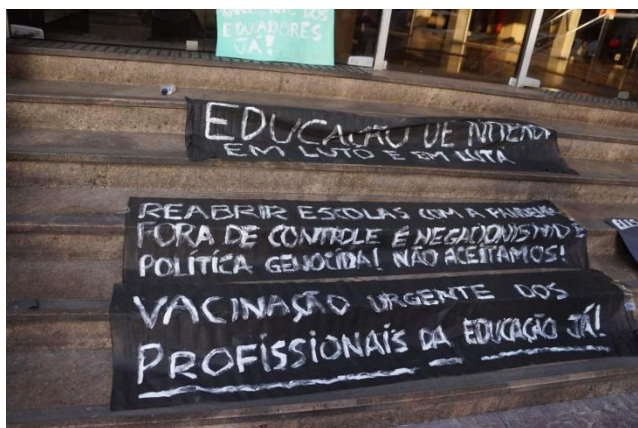 URGENTE DOS
EDUCADORES
JÁ!
EDUCAÇÃO DE NITERÓI
EM LUTO E EM LUTA
REABRIR ESCOLAS COM A PANDEMIA
FORA DE CONTROLE É NEGACIONISMO E
POLÍTICA GENOCIDA! NÃO ACEITAMOS!
VACINAÇÃO URGENTE DOS
PROFISSIONAIS DA EDUCAÇÃO JÁ!